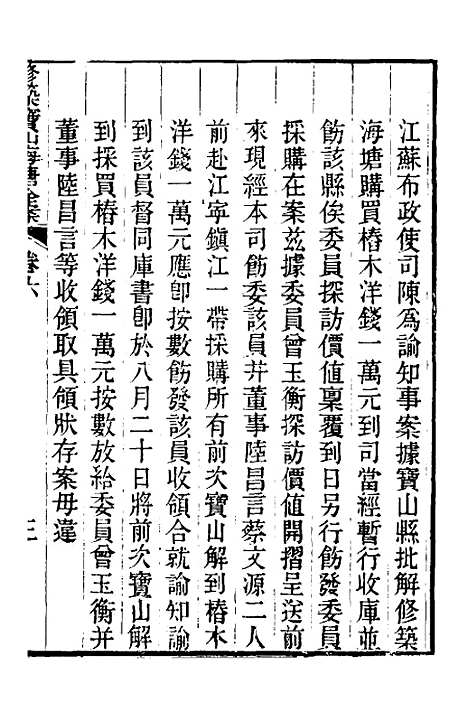 江蘇布政使司陳為諭知事案據寶山縣批解修築
海塘購買樁木洋錢一萬元到司當經暫行收庫並
飭該縣俟委員探訪價值稟覆到日另行飭發委員
採購在案茲據委員曾玉衡探訪價值開摺呈送前
來現經本司飭委該員幷董事陸昌言蔡文源二人
前赴江寧鎮江一帶採購所有前次寶山解到樁木
洋錢一萬元應卽按數飭發該員收領合就諭知諭
到該員督同庫書卽於八月二十日將前次寶山解
到採買樁木洋錢一萬元按數放給委員曾玉衡幷
董事陸昌言等收領取具領狀存案毋違
修築寶山海塘全案
卷六
三